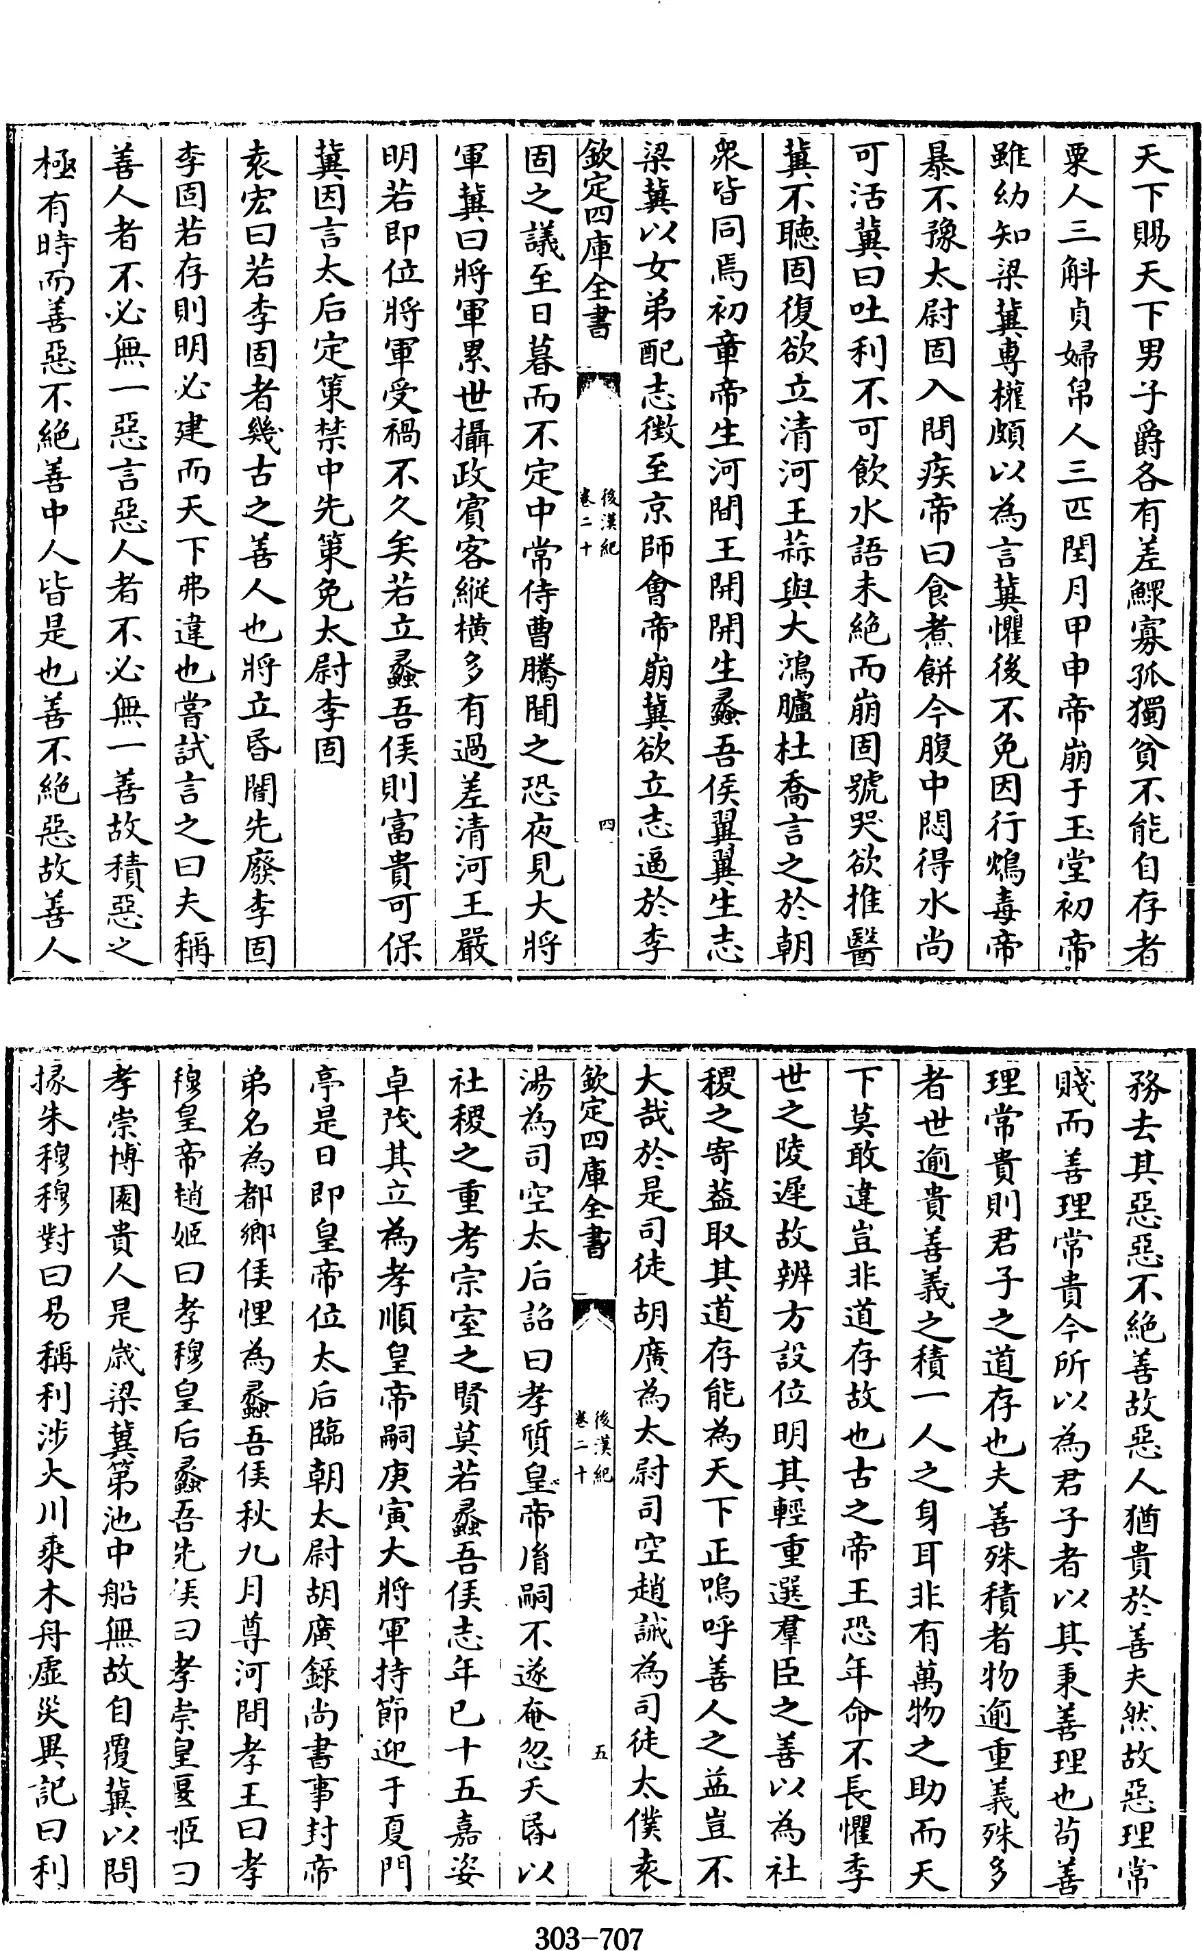 天下賜天下男子爵各有差鰥寡孤獨貧不能自存者
粟人三斛貞婦帛人三匹閏月甲申帝崩于玉堂初帝
雖幼知梁冀專權頗以為言冀懼後不免因行鴆毒帝
暴不豫太尉固入問疾帝曰食煮餅今腹中悶得水尚
可活冀曰吐利不可飲水語未絶而崩固號哭欲推醫
冀不聽固復欲立清河王蒜與大鴻臚杜喬言之於朝
衆皆同焉初章帝生河間王開開生蠡吾侯翼翼生志
梁冀以女弟配志徵至京師會帝崩冀欲立志逼於李
欽定四庫全書
後漢紀
卷二十
四
固之議至日暮而不定中常侍曹騰聞之恐夜見大將
軍冀曰將軍累世攝政賓客縱橫多有過差清河王嚴
明若即位將軍受禍不久矣若立蠡吾侯則富貴可保
冀因言太后定策禁中先策免太尉李固
袁宏曰若李固者幾古之善人也將立昏闇先廢李固
李固若存則明必建而天下弗違也嘗試言之曰夫稱
善人者不必無一惡言惡人者不必無一善故積惡之
極有時而善惡不絶善中人皆是也善不絶惡故善人
務去其惡惡不絶善故惡人猶貴於善夫然故惡理常
賤而善理常貴今所以為君子者以其秉善理也苟善
理常貴則君子之道存也夫善殊積者物逾重義殊多
者世逾貴善義之積一人之身耳非有萬物之助而天
下莫敢違豈非道存故也古之帝王恐年命不長懼季
世之陵遲故辨方設位明其輕重選羣臣之善以為社
稷之寄蓋取其道存能為天下正嗚呼善人之益豈不
大哉於是司徒胡廣為太尉司空趙誡為司徒太僕袁
欽定四庫全書
後漢紀
卷二十
五
湯為司空太后詔曰孝質皇帝胤嗣不遂奄忽夭昏以
社稷之重考宗室之賢莫若蠡吾侯志年已十五嘉姿
卓茂其立為孝順皇帝嗣庚寅大將軍持節迎于夏門
亭是日即皇帝位太后臨朝太尉胡廣錄尚書事封帝
弟名為都鄉侯悝為蠡吾侯秋九月尊河間孝王曰孝
穆皇帝趙姬曰孝穆皇后蠡吾先侯曰孝崇皇匽姬曰
孝崇博園貴人是歲梁冀第池中船無故自覆冀以問
掾朱穆穆對曰易稱利涉大川乘木舟虛災異記曰利
303-707